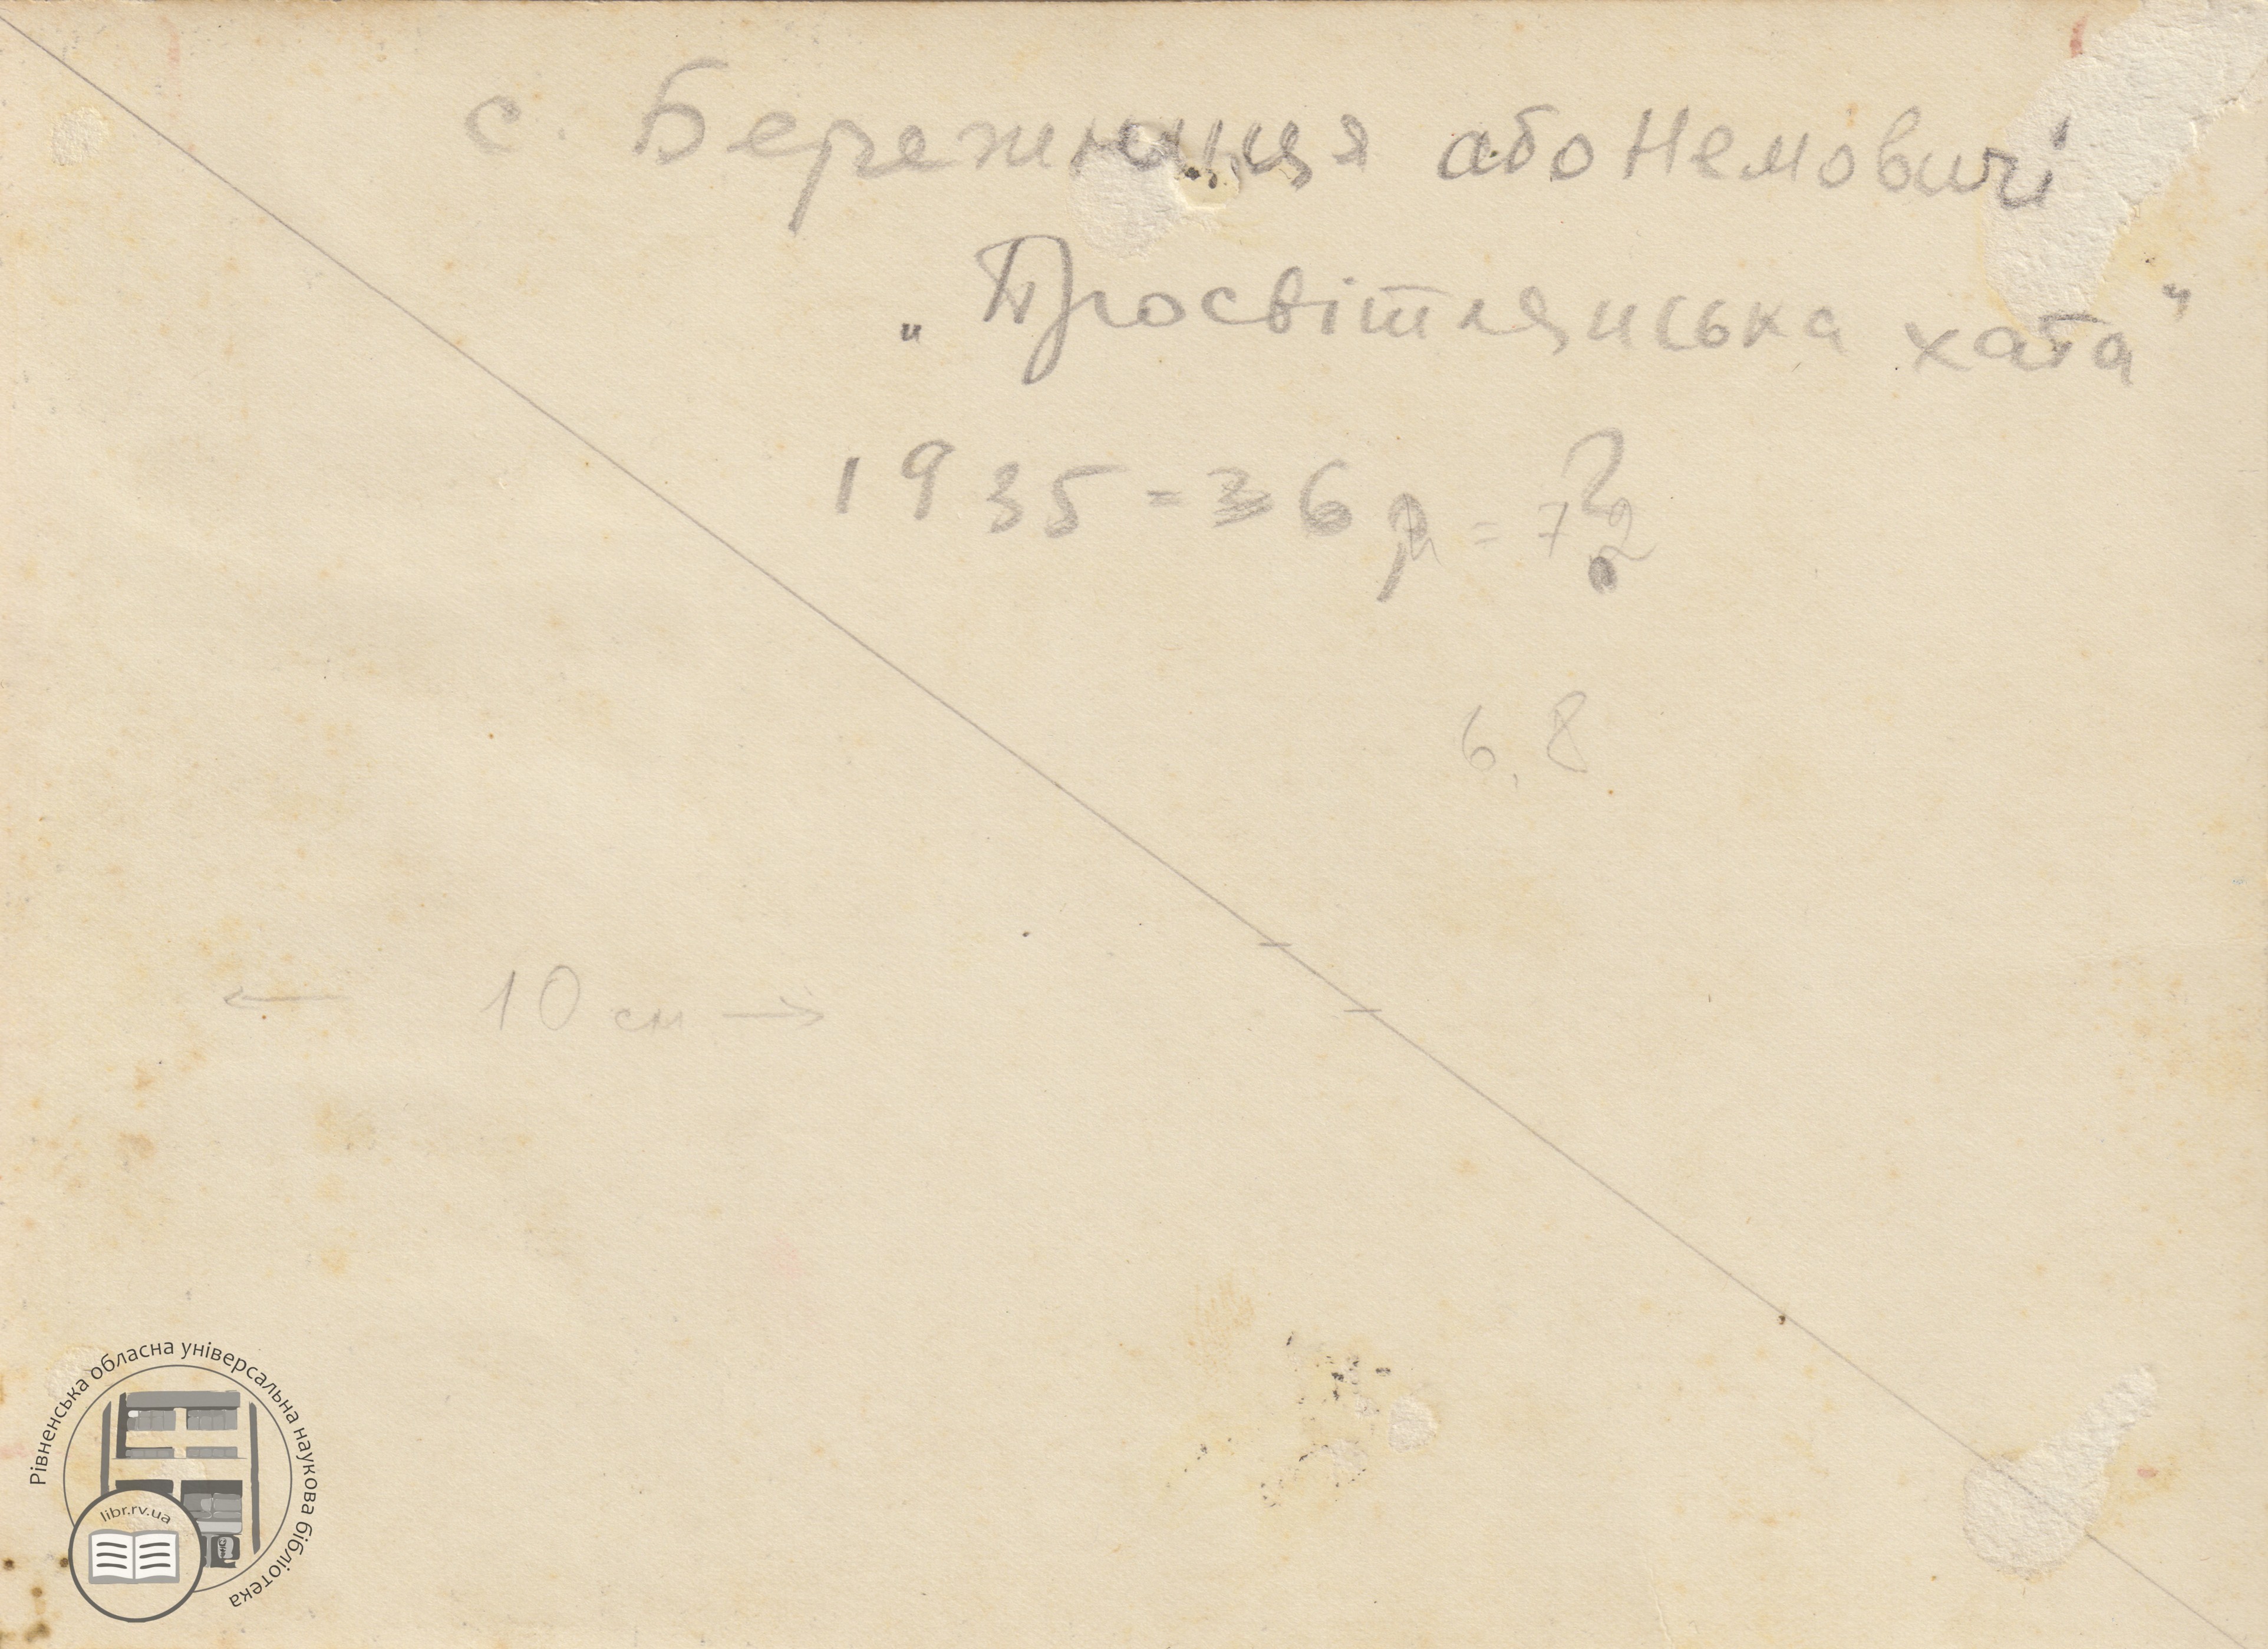 с. Бережниця або Немовичі
„Просвітянська хата"
1935-36 р = 7
6,8
← 10 см →
Рівненська обласна універсальна наукова бібліотека
libr.rv.ua